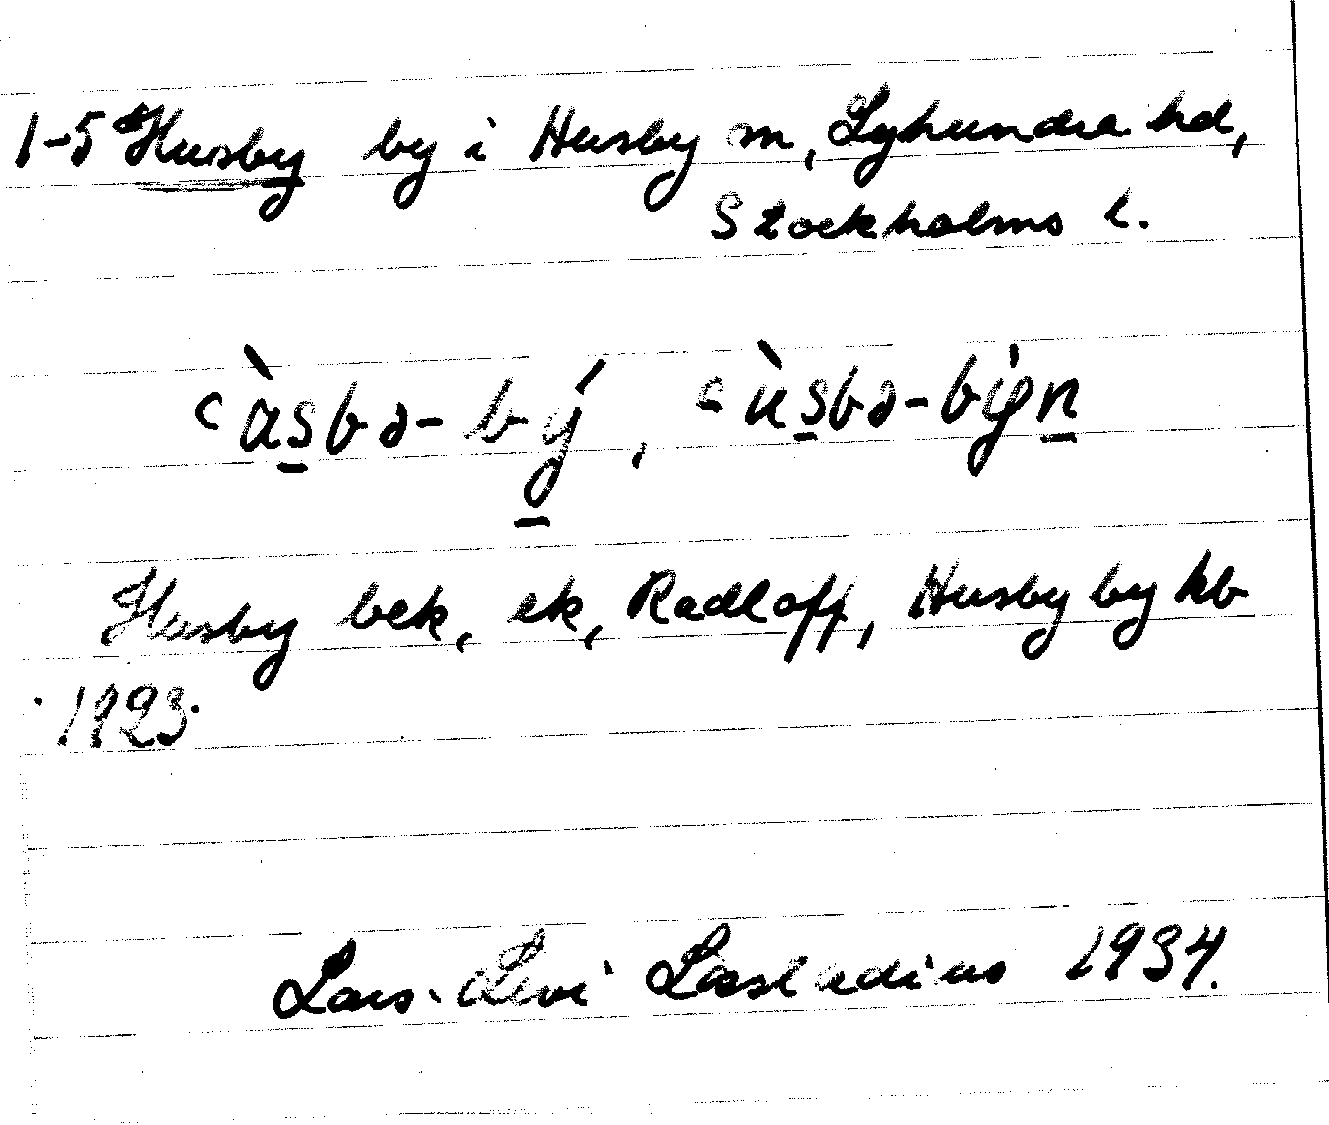 1-5 Husby by i Husby sn, Lyhundra hd,
Stockholms l.
ʿàsbə-bý, ʿùsbə-býn
Husby bek, ek, Radloff, Husby by kb
1923.
Lars-Levi Læstadius 1934.